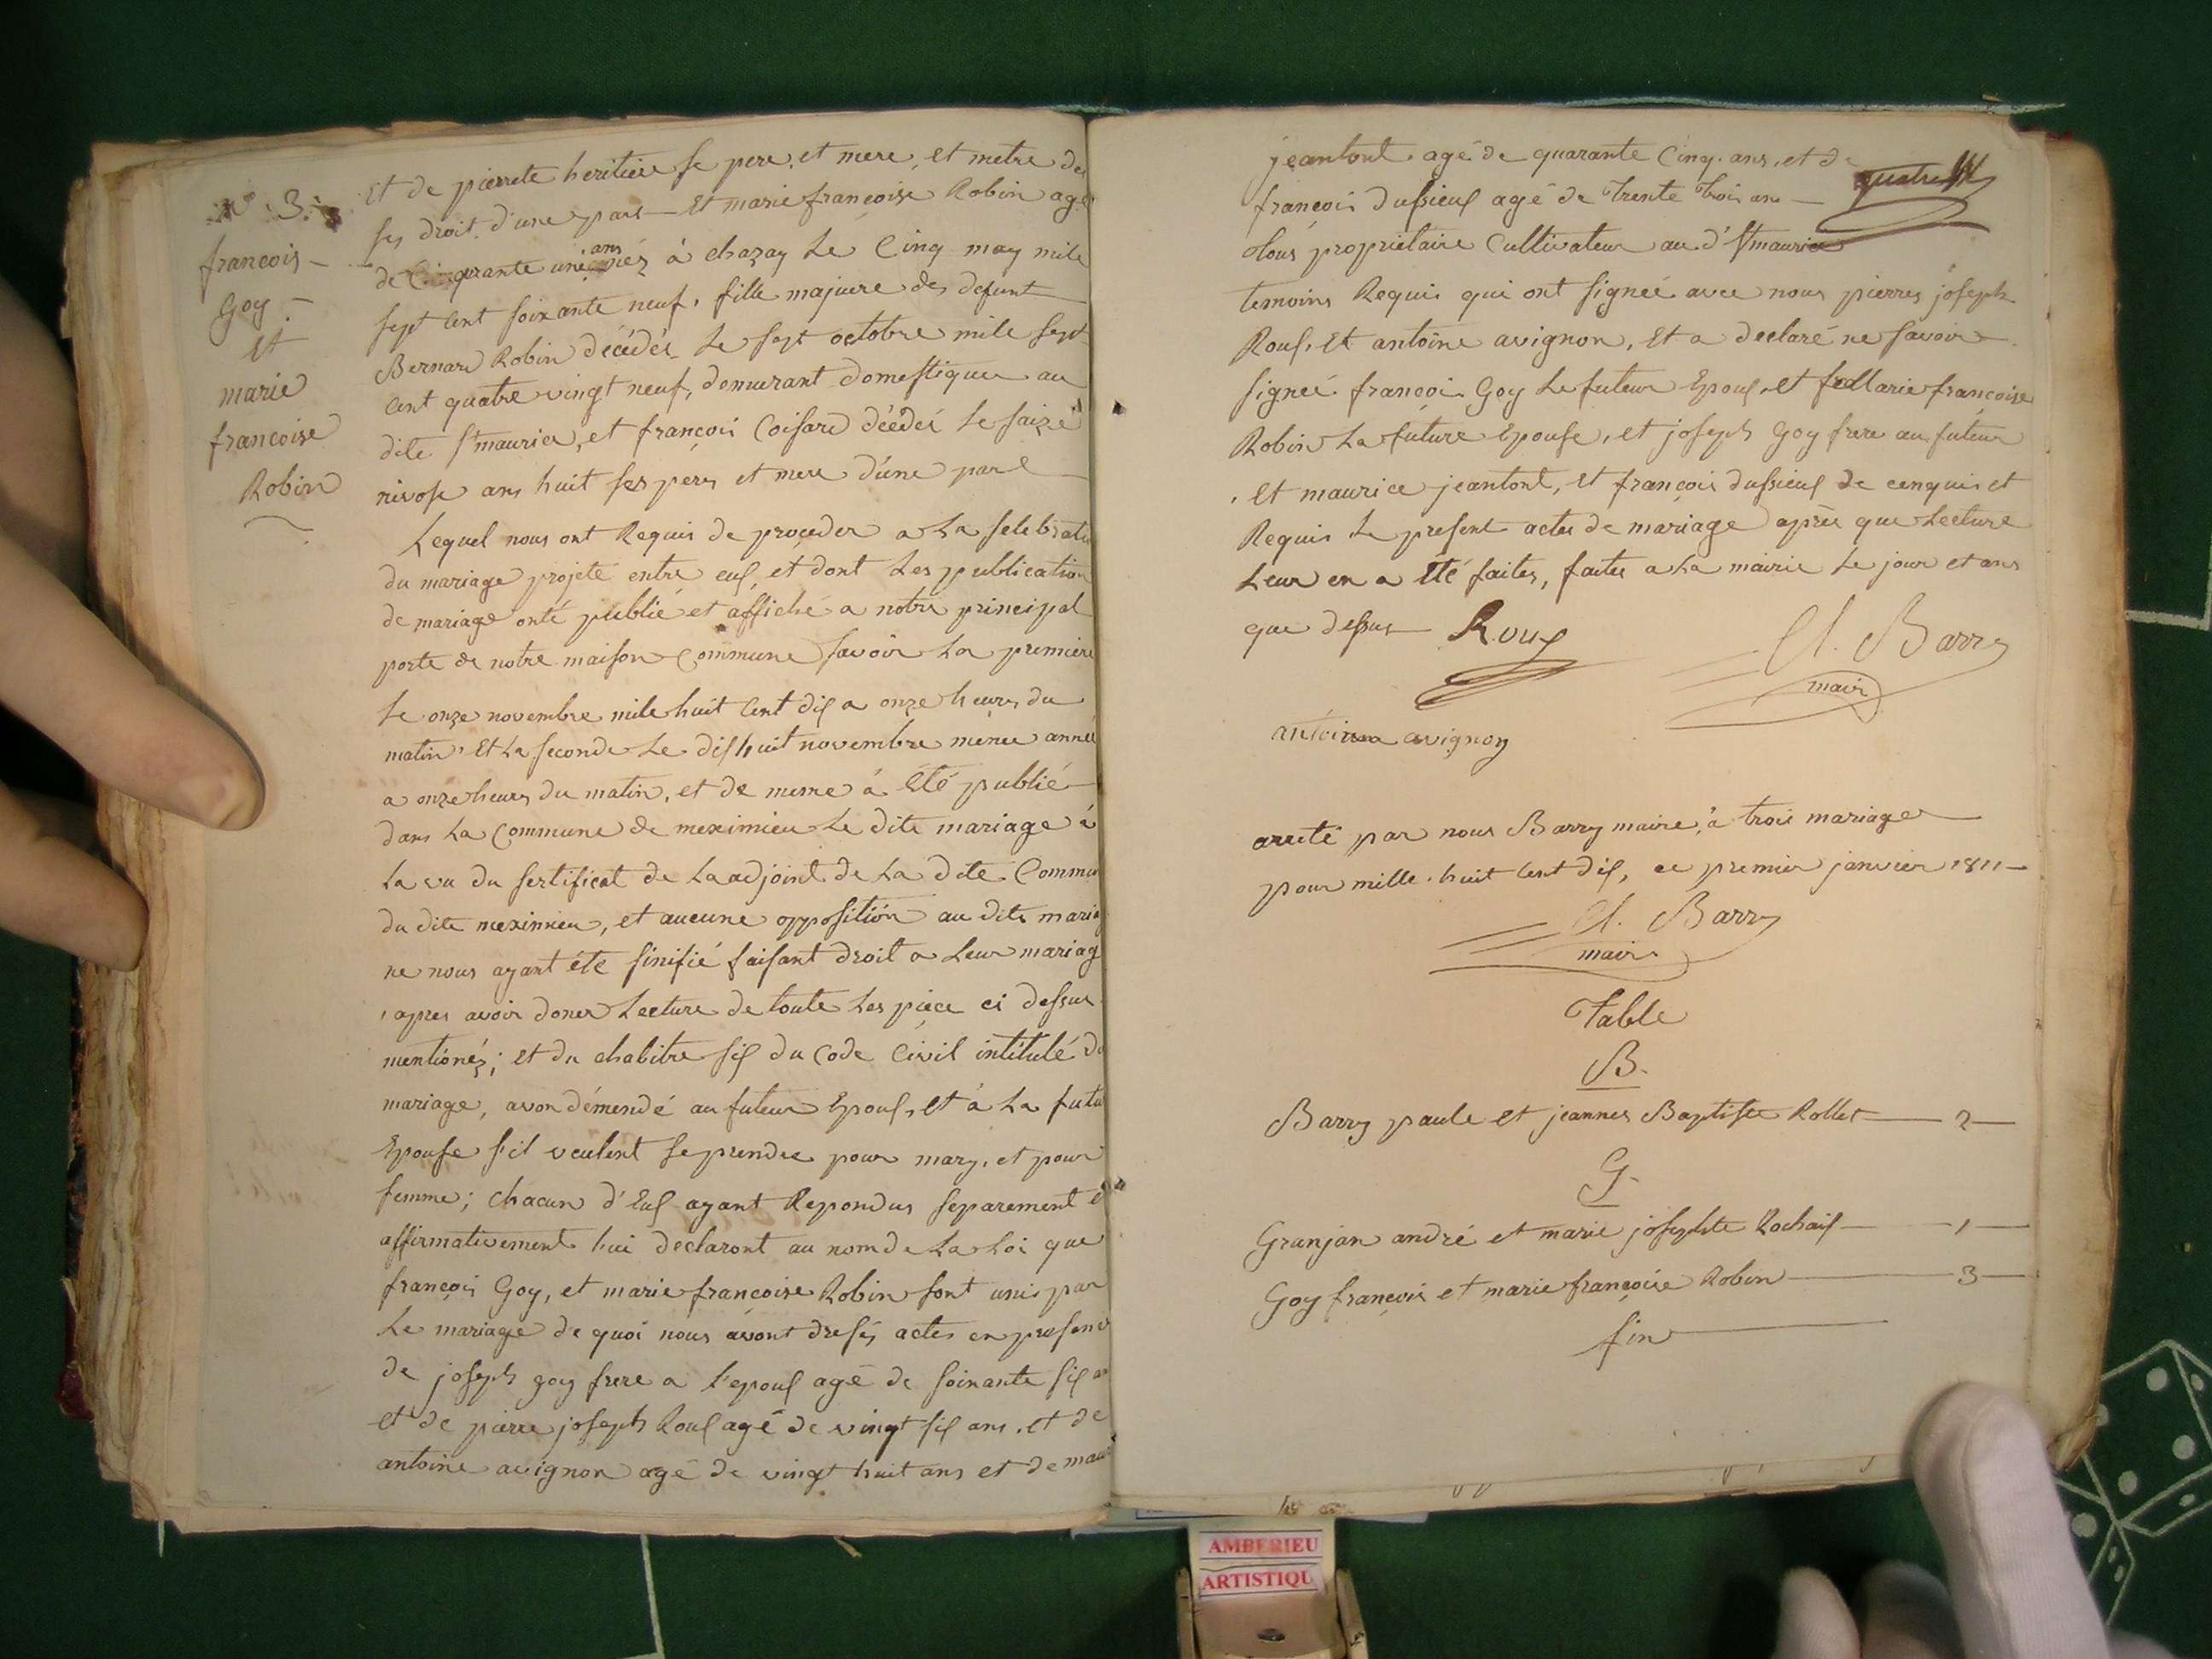 N° 3
françois
Goy
et
marie
francoise
Robin
Et de pierrete heritiere se pere et mere, et metre de
ses droit d'une part Et marie françoise Robin agé
de Cinquante une ans à chazay Le Cinq may mile
sept Cent soixante neuf, fille majuere des defunt
Bernard Robin décédés Le sept octobre mile sept
Cent quatre vingt neuf, demeurant domestiquee au
dite St maurice, et françois Coisard décédéé Le saize
nivose ans huit ses pers et mere d'une part
Lequel nous ont Requis de proceder a La selebratio
du mariage projeté entre eux, et dont Les publication
de mariage onté publié et affiché a notre principal
porte de notre maison Commune savoir La premiere
Le onze novembre mile huit Cent dix a onze heures du
matin Et La seconde Le dix huit novembre meme anneé
a onze heures du matin, et de meme à Eté publié
dans La Commune de meximieu Le dite mariage à
La vu du sertificat de Laadjoint de La dite Commu
du dite meximieu, et aucune opposition au dite mariag
ne nous ayant éte sinifié faisant droit a Leur mariag
apres avoir doner Lecture de toute Les piece ci dessus
mentionéz; et du chabitre six du Code Civil intitulé du
mariage, avon démendé au futeur Epoux, et à La futu
Epouse s'il veulent se prendre pour mary, et pour
femme; chacun d'Eux ayant Repondus separement et
affirmativement hui declaront au nom de La Loi que
françois Goy, et marie françoise Robin sont unis par
Le mariage de quoi nous avont dressés actes en presence
de joseph goy frere a l'epoux agé de soixante six an
et de pierre joseph Roux agé de vingt six ans, et de
antoine avignon agé de vingt huit ans et de mauri
jeantont agé de quarante Cinq ans, et de
françois dussieux agé de Trente trois ans
quatre
tous proprietaire Cultivateur au d' St maurice
temoins Requis qui ont signée avec nous pierres joseph
Roux, Et antoine avignon, Et a declaré ne savoir
signeé françois Goy Le futeur Epoux, et Marie françoise
Robin La future Epouse, et joseph Goy frere au futeur
, Et maurice jeantont, Et françois dussieux de cenquis et
Requis Le present actes de mariage après que Lecture
Leur en a Eté faites, faites a La mairie Le jour et ans
que dessus Roux Cl. Barry
mair
antoine avignon
arreté par nous Barry maire, à trois mariages
pour mille huit Cent dix, ce premier janvier 1811
Cl. Barry
maire
Table
B.
Barry paule et jeannes Baptiste Rollet 2
G.
Granjan andré et marie josephte Rochaix 1
Goy françois et marie françoise Robin 3
fin
AMBERIEU
ARTISTIQU